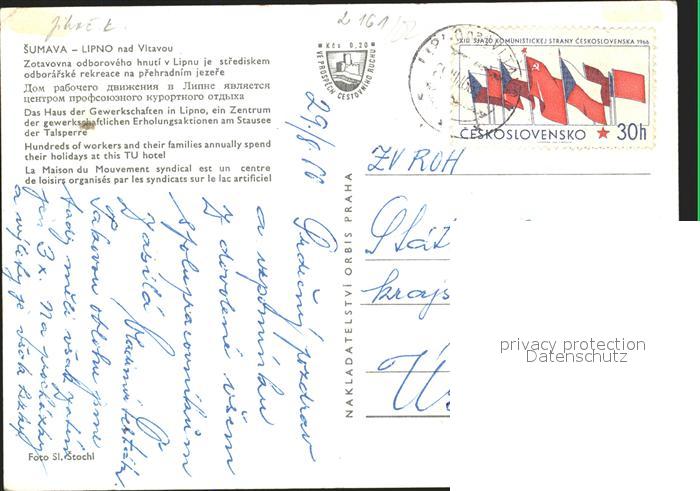 ŠUMAVA – LIPNO nad Vltavou
Zotavovna odborového hnutí v Lipnu je střediskem
odborářské rekreace na přehradním jezeře
Дом рабочего движения в Липне является
центром профсоюзного курортного отдыха
Das Haus der Gewerkschaften in Lipno, ein Zentrum
der gewerkschaftlichen Erholungsaktionen am Stausee
der Talsperre
Hundreds of workers and their families annually spend
their holidays at this TU hotel
La Maison du Mouvement syndical est un centre
de loisirs organisés par les syndicats sur le lac artificiel
Kčs 0,20
VE PROSPĚCH CESTOVNÍHO RUCHU
XIII. SJEZD KOMUNISTICKÉ STRANY ČESKOSLOVENSKA 1966
ČESKOSLOVENSKO 30h
29/8.66
Srdečný pozdrav
a vzpomínku
z dovolené všem
spolupracovníkům
zasílá
Takovou oblohu jsme
tady měli však zatím
jen 3x. Na procházky
a výlety je
ZV ROH
Stát
krajs
Ú
NAKLADATELSTVÍ ORBIS PRAHA
Foto Sl. Štochl
privacy protection
Datenschutz